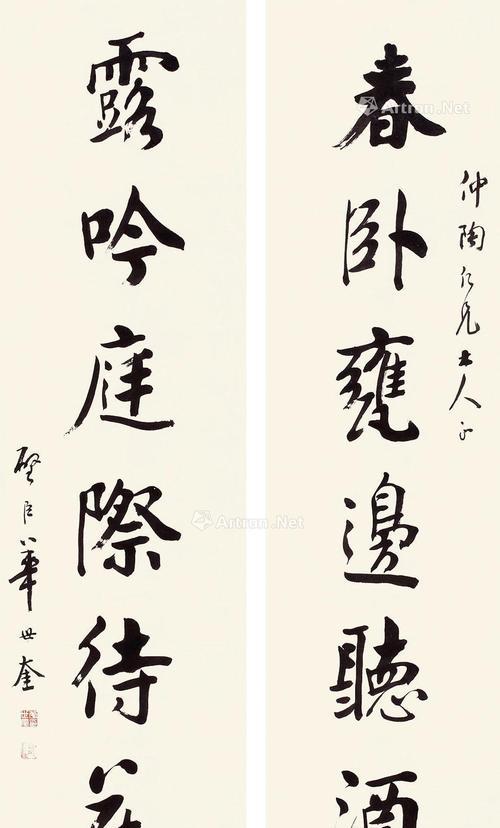 仲陶仁兄大人正
春卧甕邊聽酒
露吟庭際待
璧臣華世奎
Artron.Net
Artron.Net